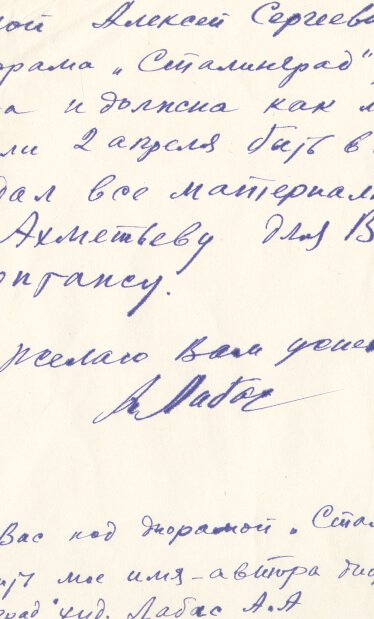 ой Алексей Сергеев
орама „Сталинград"
а и должна как м
ли 2 апреля быть в
дал все материал
Ахметьеву для В
онгансу.
желаю Вам успе
А. Лабас
Вас под диорамой „Стал
ить мое имя – автора дио
град" худ. Лабас А. А